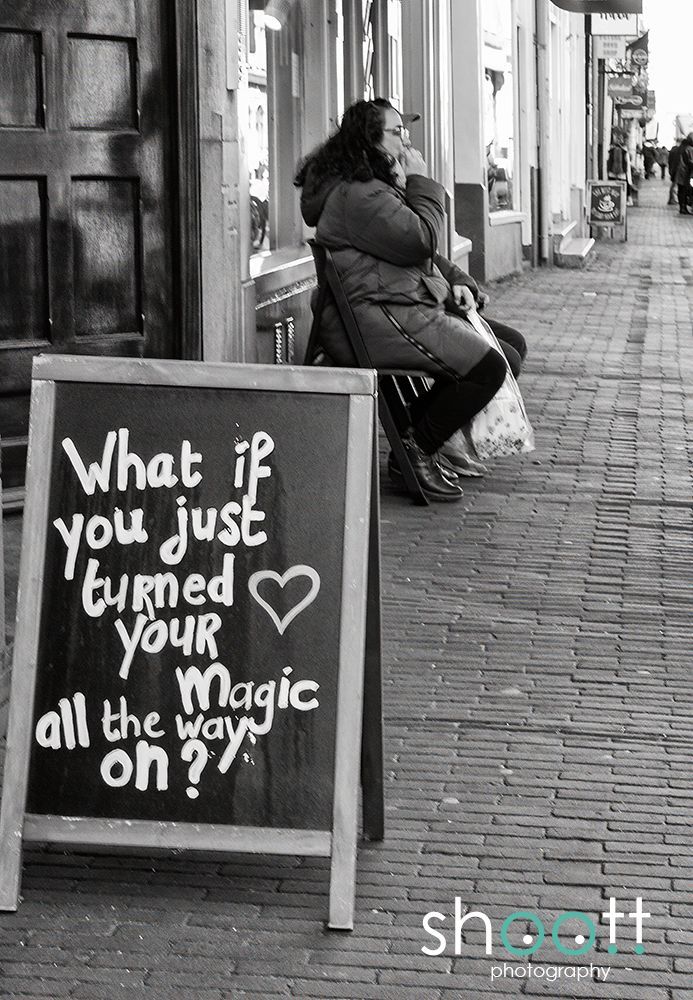 What if
you just
turned
your
magic
all the way
on?
shoott
photography